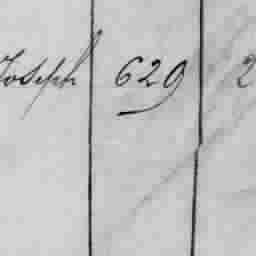 Joseph 629 2